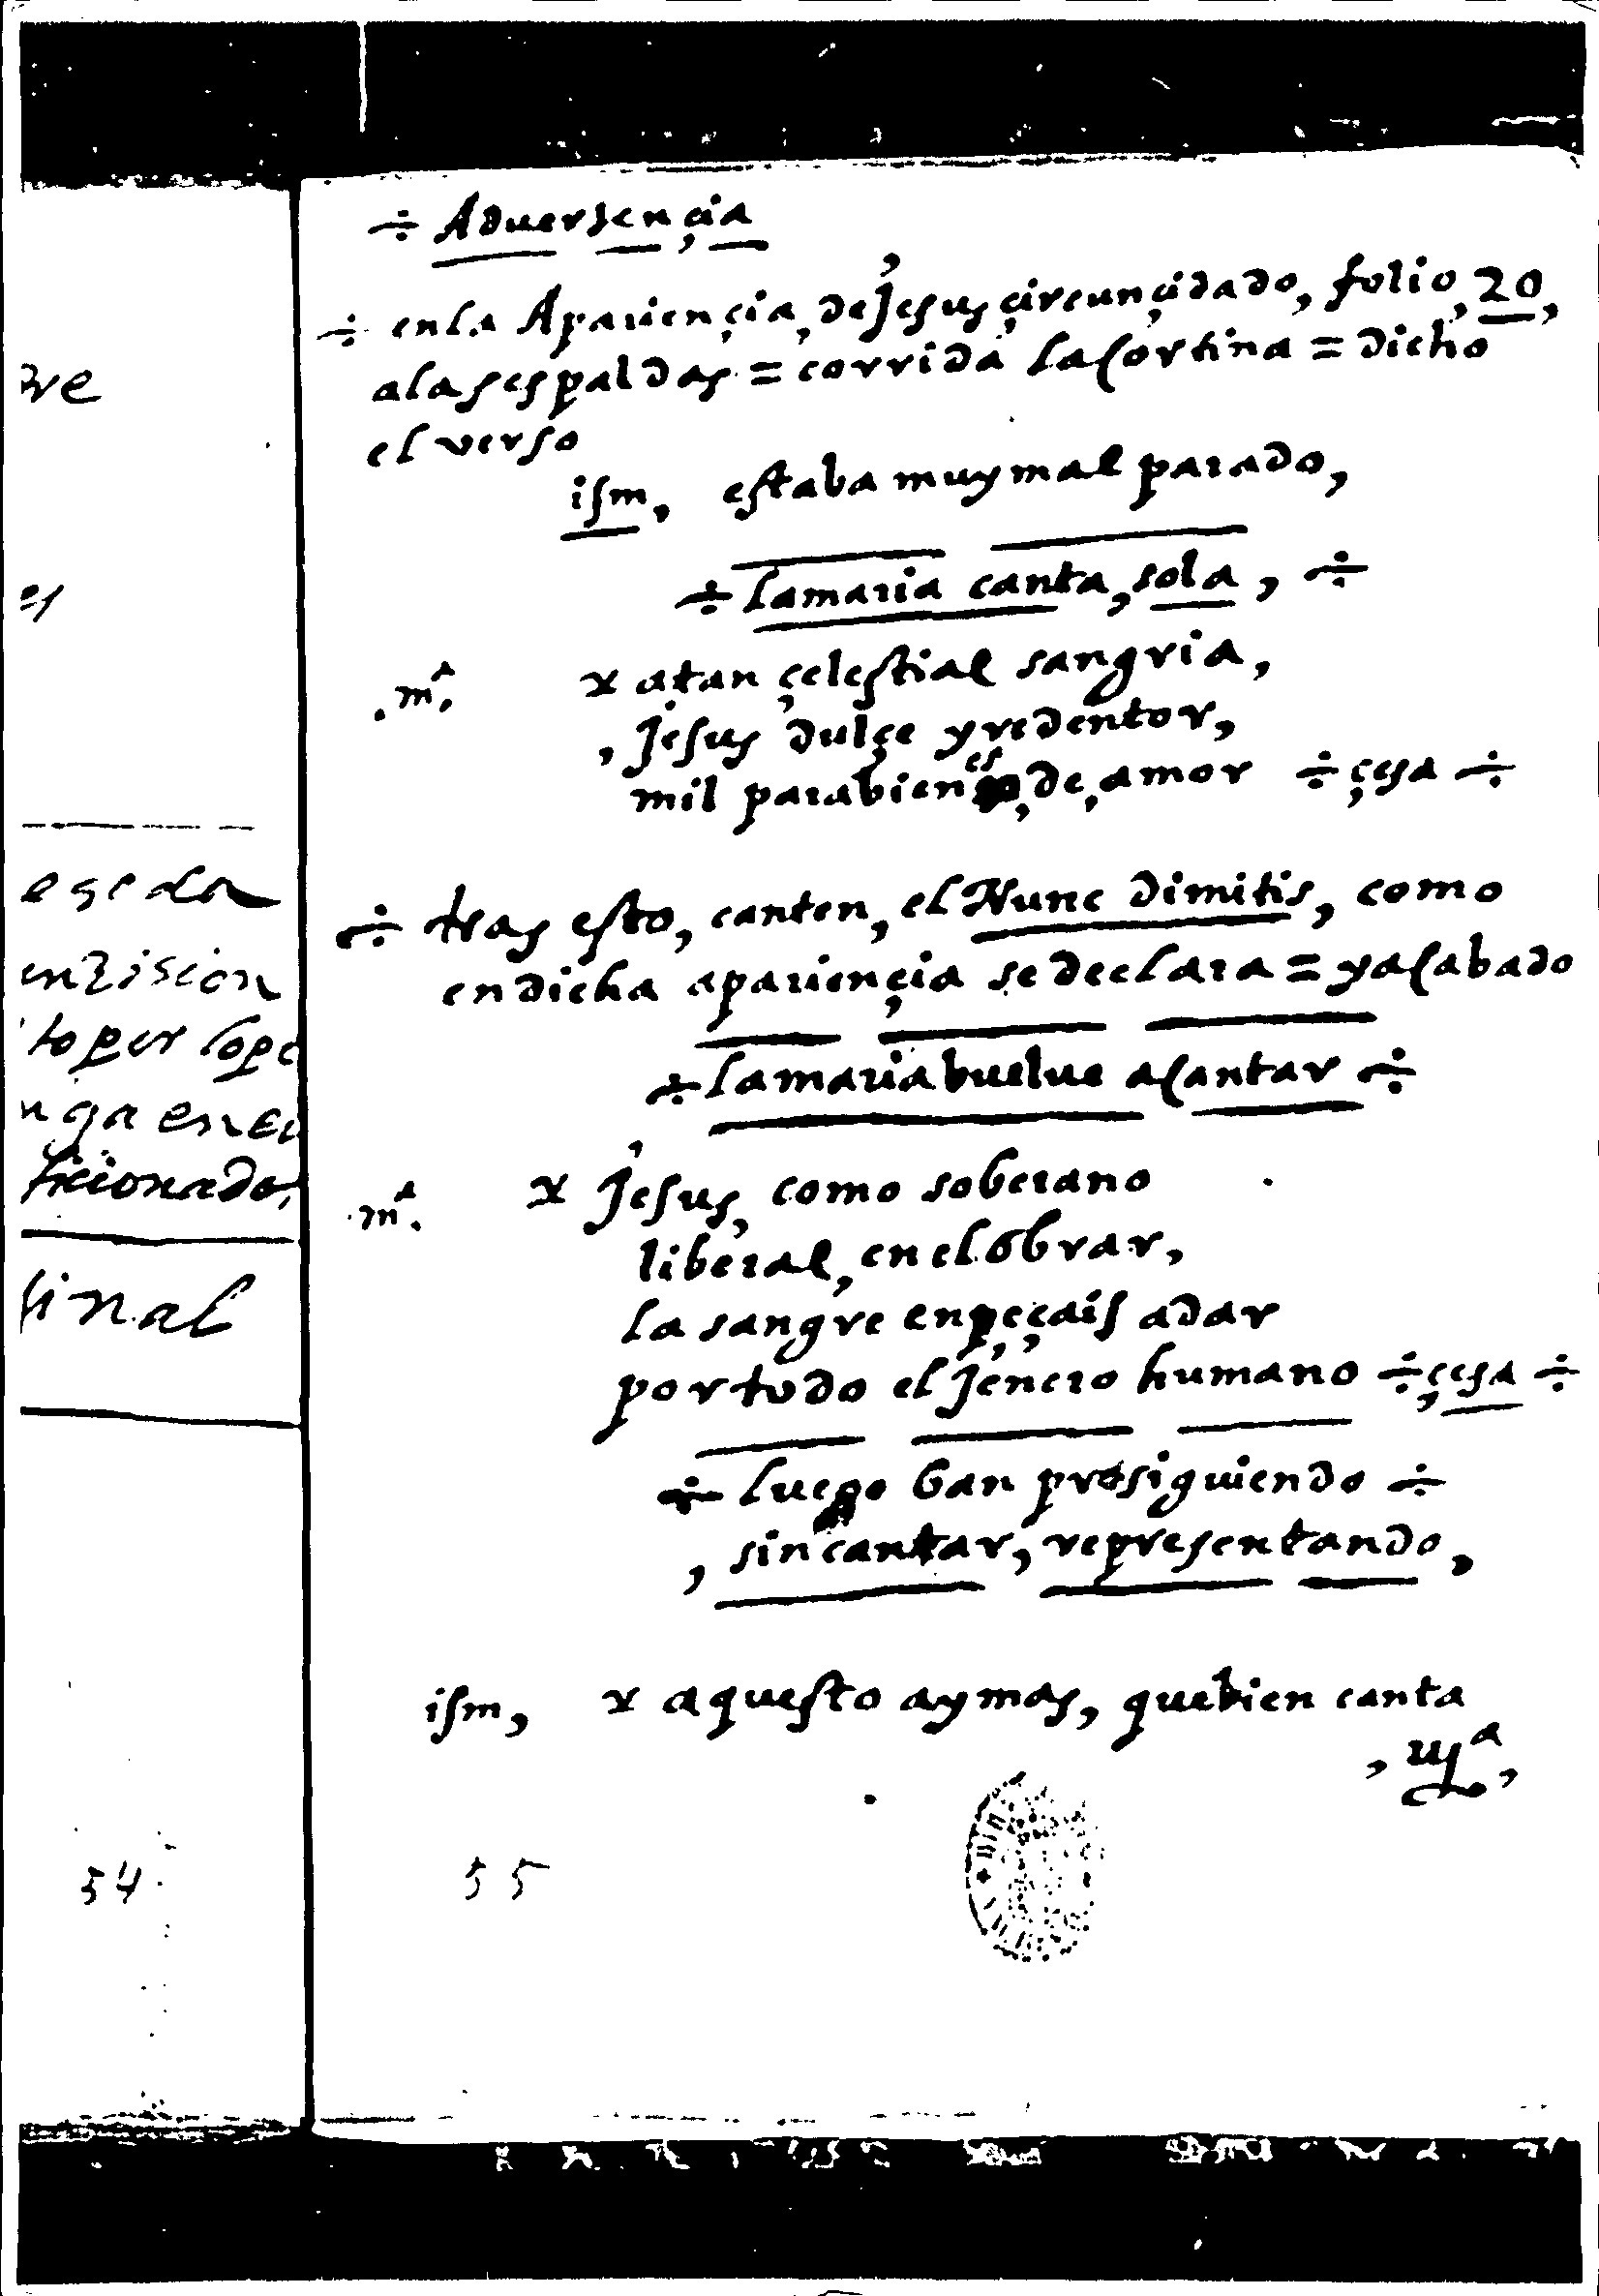 ÷ Aduertençia
÷ en la Apariençia, de Jesus çircunçidado, folio, 20,
a las espaldas = corrida la Cortina = dicho
el verso
ism, estaba muy mal parado,
÷ la maria canta, sola, ÷
.mᵃ. x a tan çelestial sangria,
, Jesus dulçe y redentor,
mil parabienes, de, amor ÷ çesa ÷
÷ tras esto, canten, el Nunc dimitis, como
en dicha apariençia se declara = y aCabado
÷ la maria buelue aCantar ÷
.mᵃ. x Jesus, como soberano
liberal, en el obrar,
la sangre enpeçais a dar
por todo el Jenero humano ÷ çesa ÷
÷ luego ban prosiguiendo ÷
, sin cantar, representando,
ism, x aquesto ay mas, que bien canta
55
re
es
e se da
to por lope
final
54